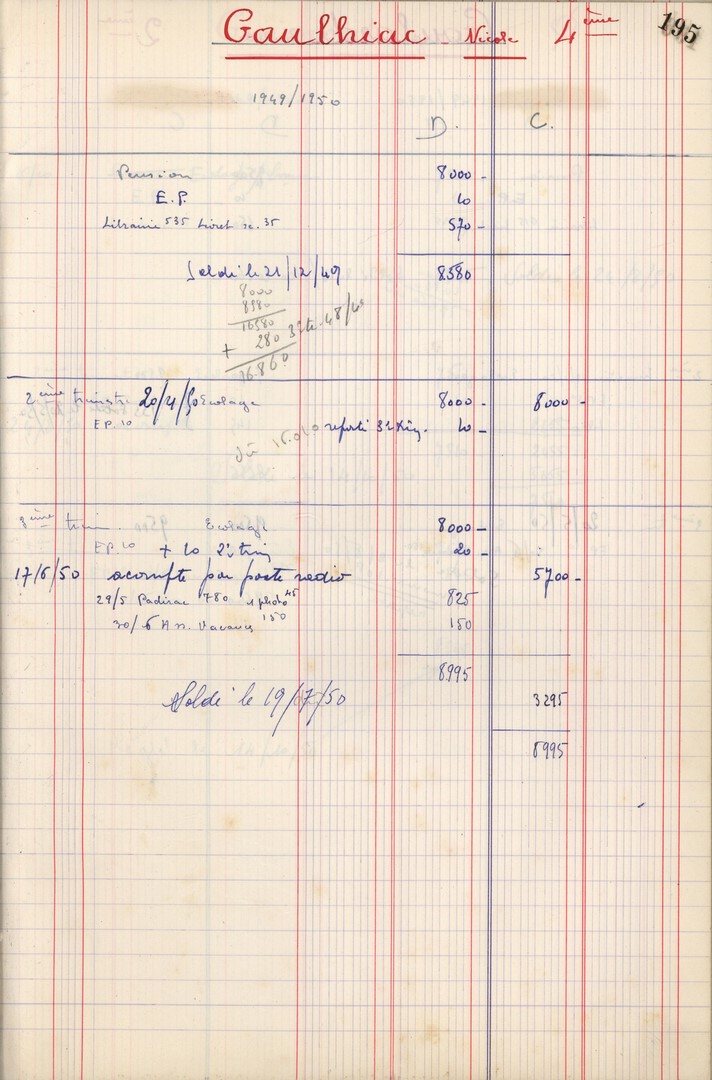 Gaulhiac Nicole 4ème 195
1949/1950
D. C.
Pension 8000 -
E.P. 10
Librairie 535 Livret sc. 35 570 -
Soldé le 21/12/49 8580
8000
8580
16580
+ 280 3e te. 48/49
16.860
2ème trimestre 20/4/50 Ecolage 8000 - 8000 -
EP. 10 reporté 3e trim. 10 -
dû 16.010
3ème trim. Ecolage 8000 -
EP. 10 + 10 2e trim 20 -
17/6/50 acompte par poste radio 5700 -
29/5 Padirac 780 1 photo 45 825
30/6 A n. Vacances 150 150
8995
Soldé le 19/7/50 3295
8995